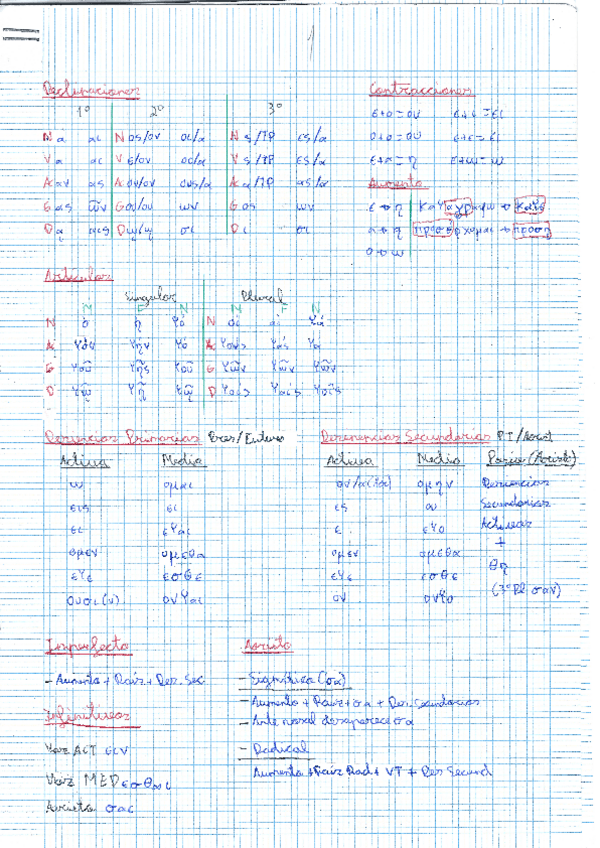 1
Declinaciones
1º 2º 3º
N α αι N ος/ον οι/α N ς/TP ες/α
V α αι V ε/ον οι/α V ς/TP ες/α
A αν ας A ον/ον ους/α A α/TP ας/α
G ας ῶν G ου/ου ων G ος ων
D ᾳ αις D ῳ/ῳ οι D ι σι
Contracciones
ε+ο=ου ε+ε=ει
ο+ο=ου
ε+α=η ε+ω=ω
Aumento
ε→η
α→η
ο→ω
Artículos
Singular Plural
M F N M F N
N ὁ ἡ τό N οἱ αἱ τά
A τόν τήν τό A τούς τάς τά
G τοῦ τῆς τοῦ G τῶν τῶν τῶν
D τῷ τῇ τῷ D τοῖς ταῖς τοῖς
Desinencias Primarias Pres/Futuro
Activa Media
ω ομαι
εις ει
ει εται
ομεν ομεθα
ετε εσθε
ουσι(ν) ονται
Desinencias Secundarias PI/Aorist
Activa Media Pasiva (Aoristo)
ομην Desinencias
ες ου Secundarias
ε ετο Activas
ομεν ομεθα +
ετε εσθε θη
ον οντο (3ª Pl σαν)
Imperfecto
- Aumento + Raíz + Des. Sec
Infinitivos
Voz ACT ειν
Voz MED εσθαι
Aoristo σαι
Aoristo
- Sigmática (σα)
- Aumento + Raíz + σα + Des. Secundarias
- Ante nasal desaparece σα
- Radical
Aumento + Raíz Rad + VT + Des Secund